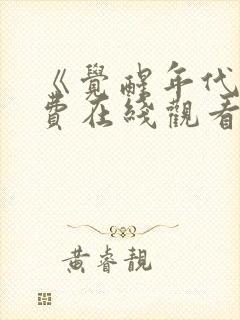 《覺醒年代
費在綫觀看
黃睿靚